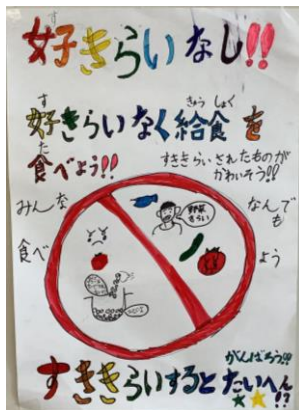 好きらいなし!!
好きらいなく給食を
食べよう!!
すききらいされたものが
かわいそう!!
みんな
なんで
も
食べ
よう
野菜
きらい
がんばろう!!
すききらいするとたいへん!?